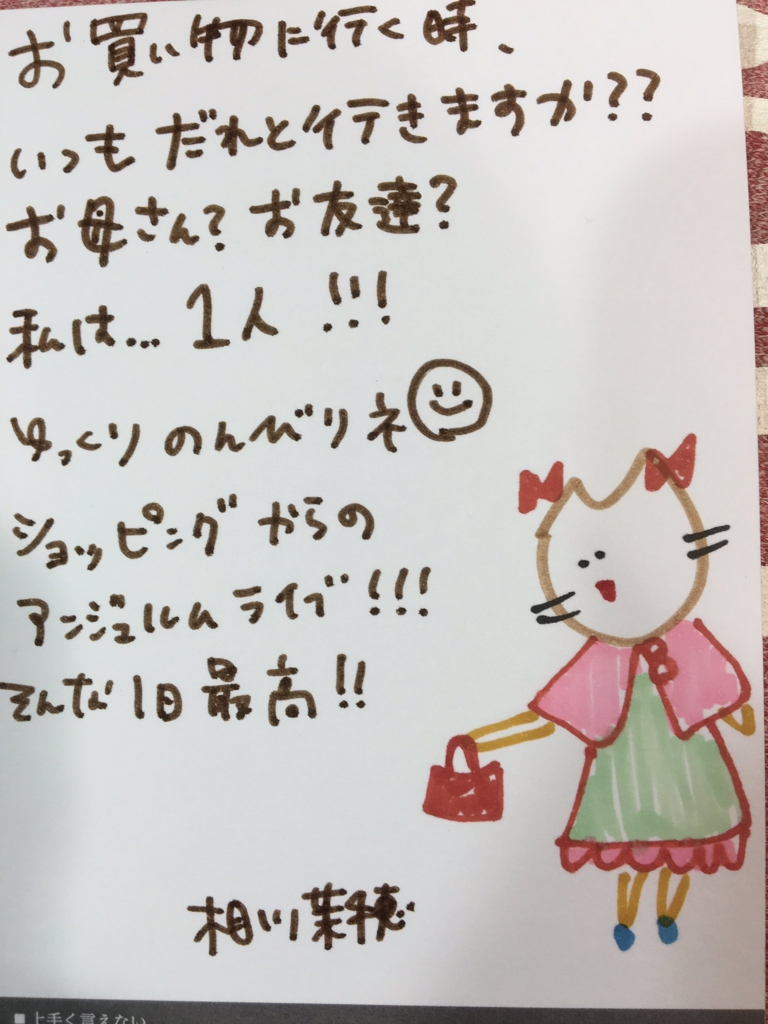 お買い物に行く時、
いつもだれと行きますか??
お母さん?お友達?
私は…1人!!!
ゆっくりのんびりネ
ショッピングからの
アンジュルムライブ!!!
そんな1日最高!!
相川茉穂
■上手く言えない